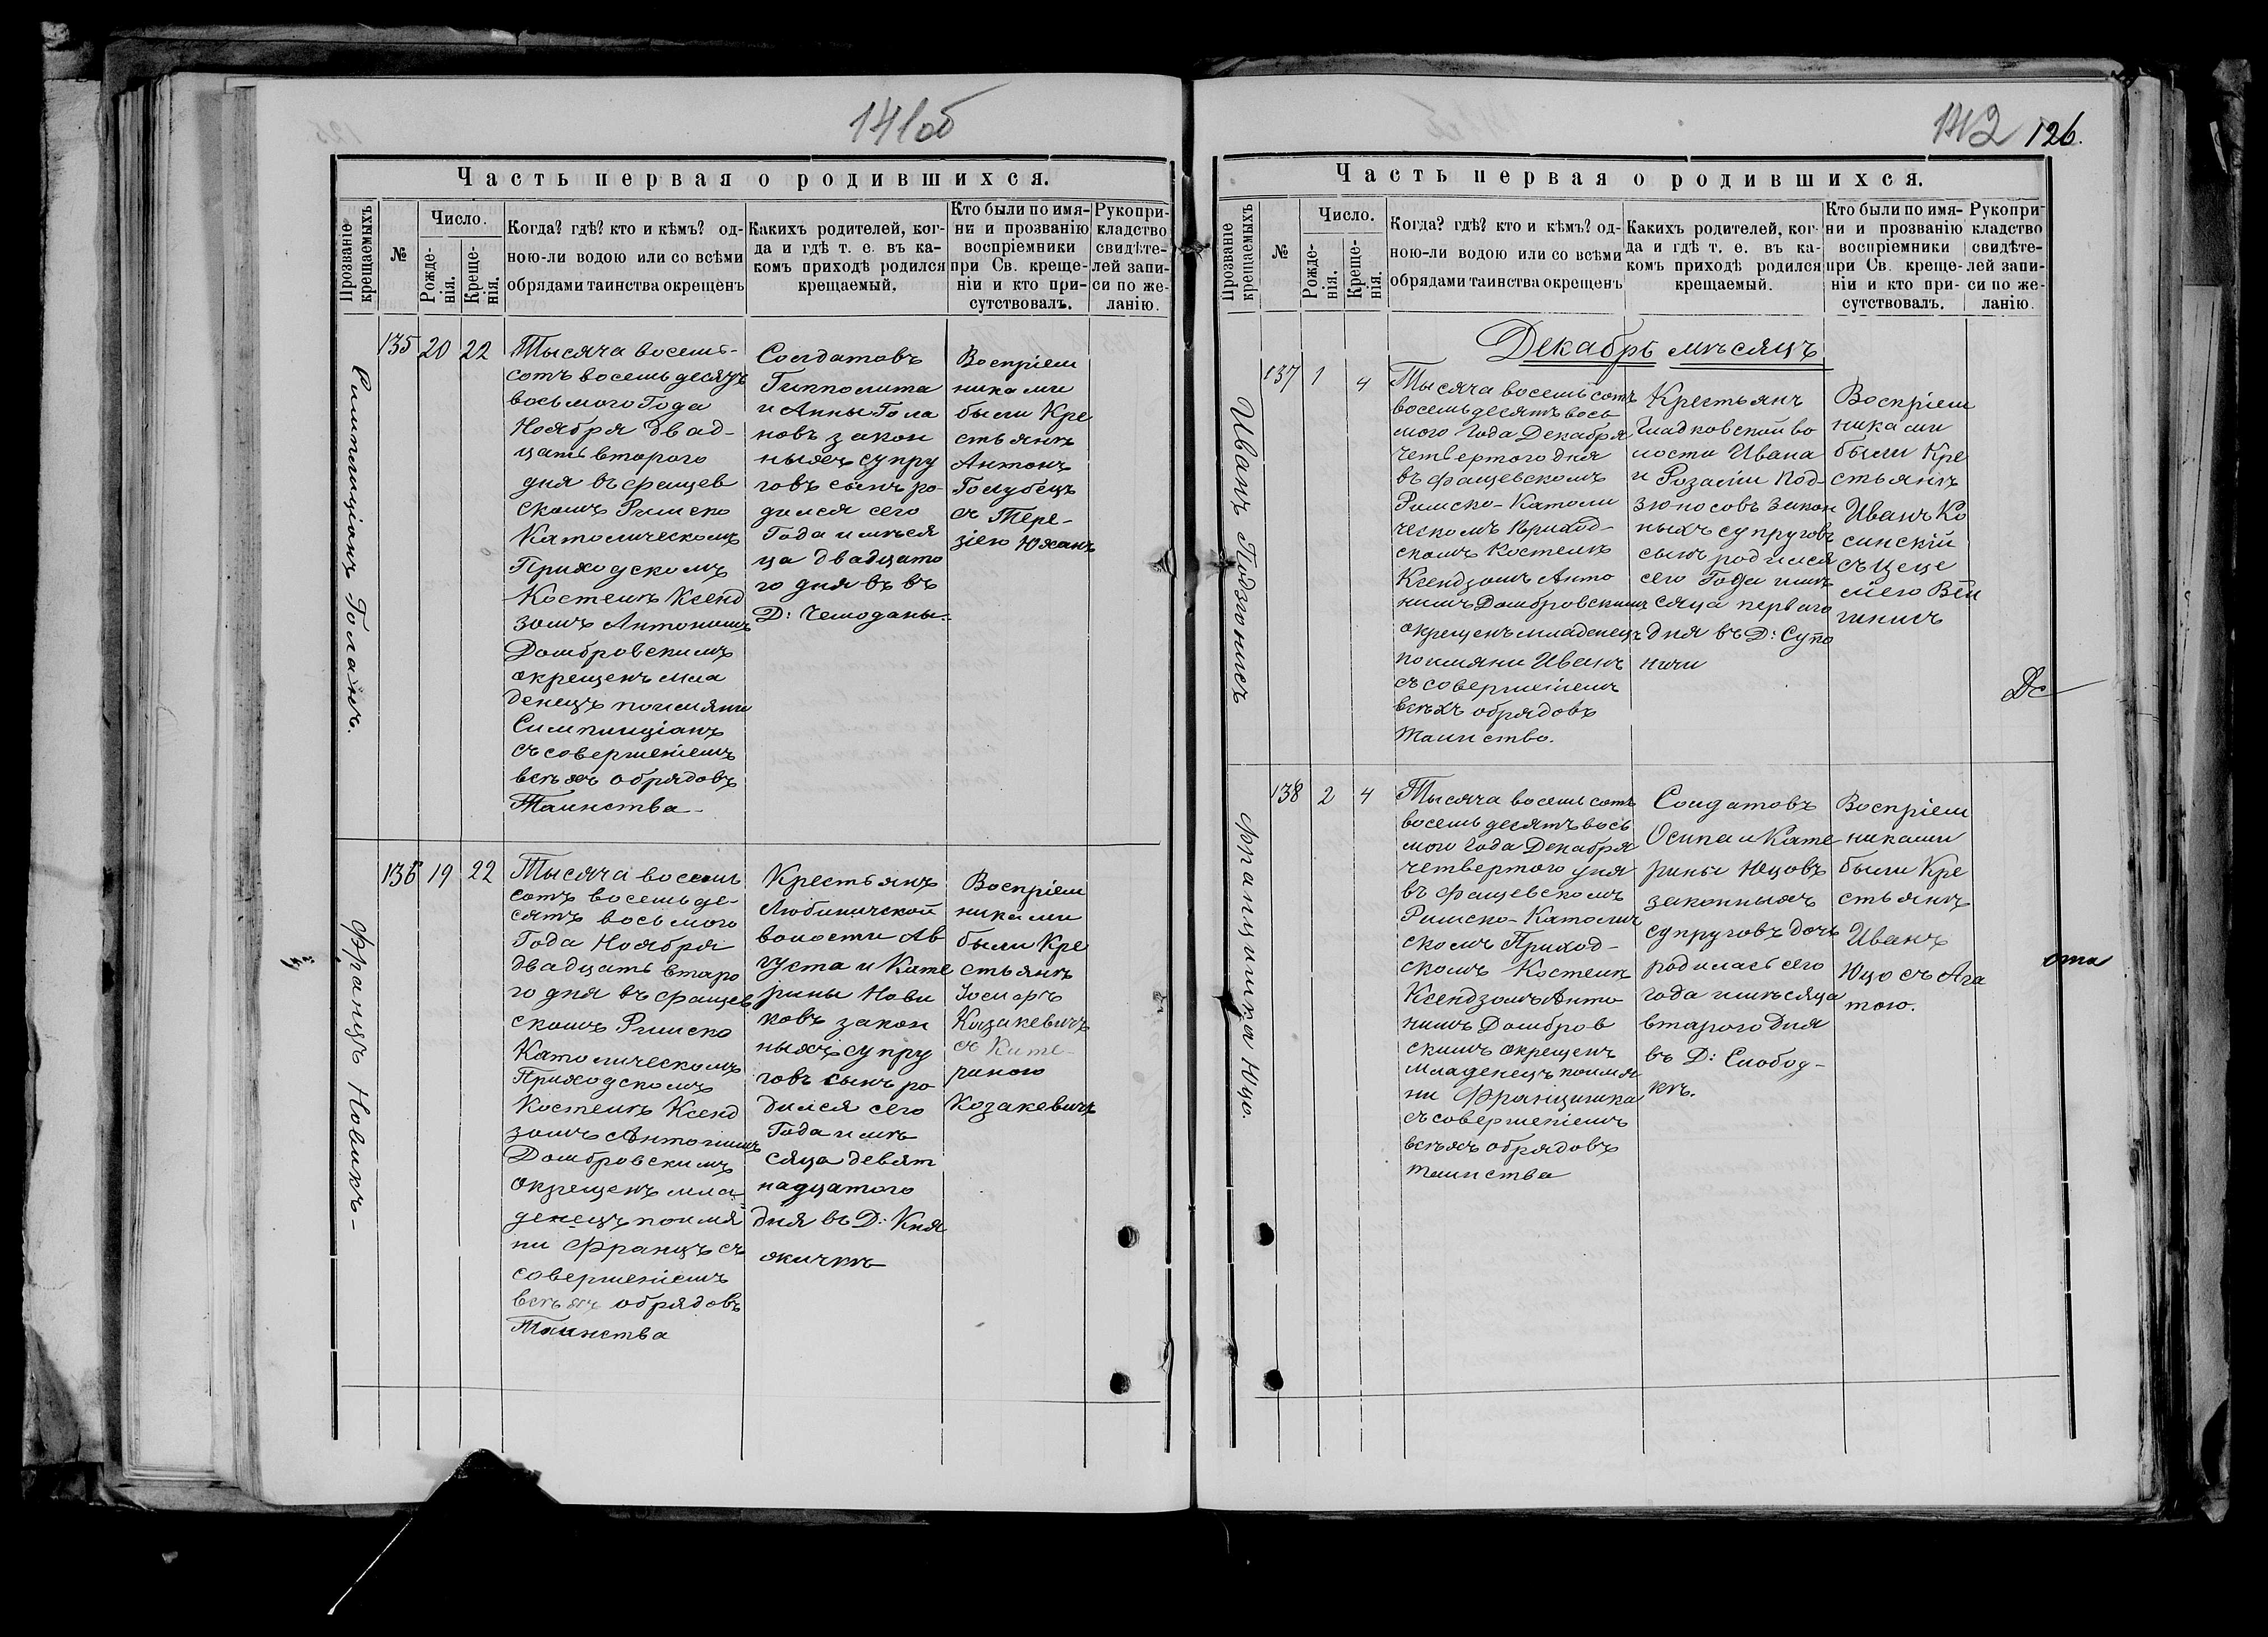 141об
Часть первая о родившихся.
Прозваніе крещаемыхъ
№
Число.
Рожде-
нія.
Креще-
нія.
Когда? гдѣ? кто и кѣмъ? од-
ною-ли водою или со всѣми
обрядами таинства окрещенъ
Какихъ родителей, ког-
да и гдѣ т. е. въ ка-
комъ приходѣ родился
крещаемый.
Кто были по имя-
ни и прозванію
воспріемники
при Св. креще-
ніи и кто при-
сутствовалъ.
Рукопри-
кладство
свидѣте-
лей запи-
си по же-
ланію.
Симплиціонъ Голанъ.
135 20 22
Тысяча восемь-
сотъ восемьдесятъ
восьмого Года
Ноября двад-
цать второго
дня въ Фащев
скомъ Римско
Католическомъ
Приходскомъ
Костелѣ Ксенд
зомъ Антонимъ
Домбровскимъ
окрещенъ мла
денецъ поимяни
Симплиціанъ
съ совершеніемъ
всѣхъ обрядовъ
Таинства-
Солдатовъ
Гипполита
и Анны Гола
новъ закон
ныхъ супру
говъ сынъ ро-
дился сего
Года и мѣся
ца двадцато
го дня въ въ
Д: Чемоданы.
Воспріем
никами
были Кре
стьянъ
Антонъ
Голубецъ
съ Тере-
зіею Юханъ
Францъ Новикъ-
136 19 22
Тысяча восемь
сотъ восемьде-
сятъ восьмого
Года Ноября
двадцать второ
го дня въ Фащев
скомъ Римско
Католическомъ
Приходскомъ
Костелѣ Ксенд
зомъ Антонимъ
Домбровскимъ
Окрещенъ мла
денецъ поимя
ни Францъ съ
совершеніемъ
всѣхъ обрядовъ
Таинства
Крестьянъ
Любиничской
волости Ав
густа и Кате
рины Нови
ковъ закон
ныхъ супру
говъ сынъ ро
дился сего
Года и мѣ
сяца девят
надцатого
дня въ Д: Кня
жичкѣ
Воспріем
никами
были Кре
стьянъ
Казакевичъ
съ Кате-
риною
Козакевичъ
142 126.
Часть первая о родившихся.
Прозваніе крещаемыхъ
№
Число.
Рожде-
нія.
Креще-
нія.
Когда? гдѣ? кто и кѣмъ? од-
ною-ли водою или со всѣми
обрядами таинства окрещенъ
Какихъ родителей, ког-
да и гдѣ т. е. въ ка-
комъ приходѣ родился
крещаемый.
Кто были по имя-
ни и прозванію
воспріемники
при Св. креще-
ніи и кто при-
сутствовалъ.
Рукопри-
кладство
свидѣте-
лей запи-
си по же-
ланію.
Декабрь мѣсяцъ
Иванъ Подзюносъ
137 1 4
Тысяча восемь сотъ
восемьдесятъ вось
мого Года Декабря
четвертого дня
въ Фащевскомъ
Римско-Католи
ческомъ Приход-
скомъ Костелѣ
Ксендзомъ Анто
нимъ Домбровскимъ
окрещенъ младенецъ
поимяни Иванъ
съ совершеніемъ
всѣхъ обрядовъ
Таинство.
Крестьянъ
Гладковской во
лости Ивана
и Розаліи Под-
зюносовъ закон
ныхъ супруговъ
сынъ родился
сего Года и мѣ
сяца перваго
дня въ Д: Супо
ничи
Воспріем
никами
были Кре
стьянъ
Иванъ Ко
синскій
съ Цеце
ліею Вей
гинисъ
Францишка Юцо.
138 2 4
Тысяча восемь сотъ
восемьдесятъ вось
мого Года Декабря
четвертого дня
въ Фащевскомъ
Римско-Католич
скомъ Приход-
скомъ Костелѣ
Ксендзомъ Анто
нимъ Домбров
скимъ окрещенъ
младенецъ поимя
ни Францишка
съ совершеніемъ
всѣхъ обрядовъ
таинства
Солдатовъ
Осипа и Кате
рины Юцовъ
законныхъ
супруговъ дочь
родилась сего
года и мѣсяца
втораго дня
въ Д: Слобод-
кѣ.
Воспріем
никами
были Кре
стьянъ
Иванъ
Юцо съ Ага
тою.